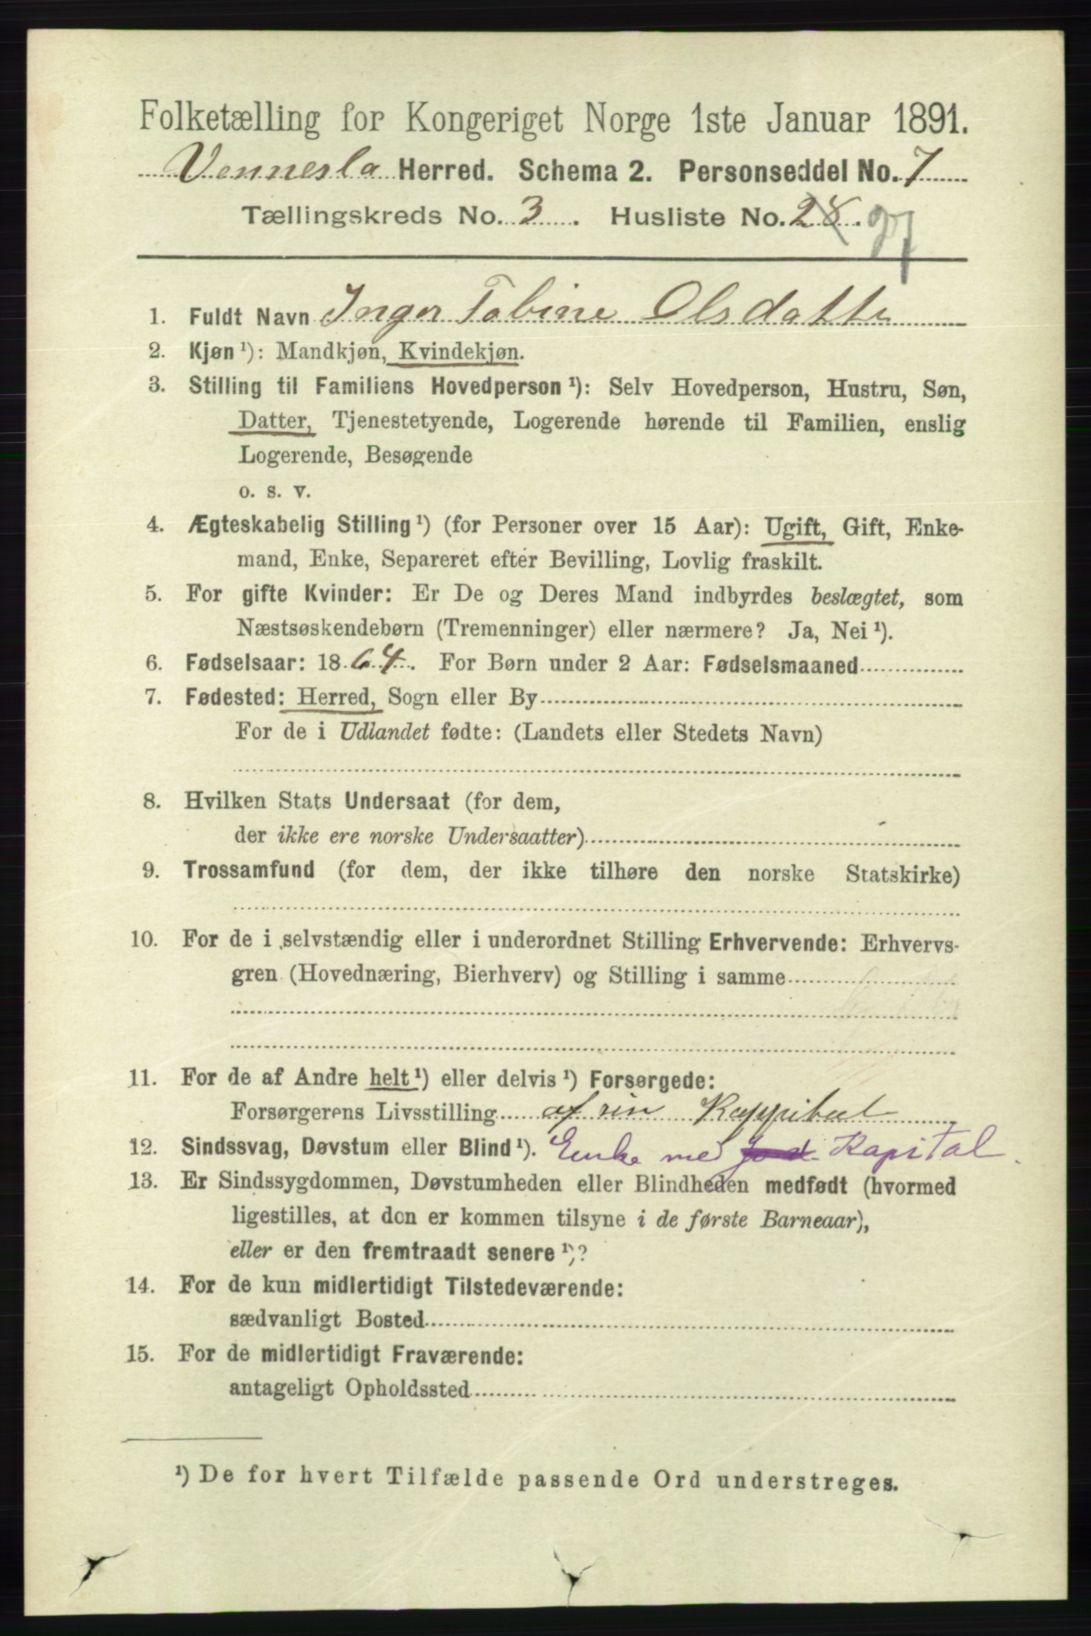 Folketælling for Kongeriget Norge 1ste Januar 1891.
Vennesla Herred. Schema 2. Personseddel No. 7
Tællingskreds No. 3. Husliste No. 28. 27
1. Fuldt Navn Inger Tobine Olsdatter
2. Kjøn ¹): Mandkjøn, Kvindekjøn.
3. Stilling til Familiens Hovedperson ¹): Selv Hovedperson, Hustru, Søn,
Datter, Tjenestetyende, Logerende hørende til Familien, enslig
Logerende, Besøgende
o. s. v.
4. Ægteskabelig Stilling ¹) (for Personer over 15 Aar): Ugift, Gift, Enke-
mand, Enke, Separeret efter Bevilling, Lovlig fraskilt.
5. For gifte Kvinder: Er De og Deres Mand indbyrdes beslægtet, som
Næstsøskendebørn (Tremenninger) eller nærmere? Ja, Nei ¹).
6. Fødselsaar: 1864. For Børn under 2 Aar: Fødselsmaaned
7. Fødested: Herred, Sogn eller By
For de i Udlandet fødte: (Landets eller Stedets Navn)
8. Hvilken Stats Undersaat (for dem,
der ikke ere norske Undersaatter)
9. Trossamfund (for dem, der ikke tilhøre den norske Statskirke)
10. For de i selvstændig eller i underordnet Stilling Erhvervende: Erhvervs-
gren (Hovednæring, Bierhverv) og Stilling i samme
11. For de af Andre helt ¹) eller delvis ¹) Forsørgede:
Forsørgerens Livsstilling af sin Kappital
12. Sindssvag, Døvstum eller Blind ¹). Enke med Kapital.
13. Er Sindssygdommen, Døvstumheden eller Blindheden medfødt (hvormed
ligestilles, at den er kommen tilsyne i de første Barneaar),
eller er den fremtraadt senere ¹)?
14. For de kun midlertidigt Tilstedeværende:
sædvanligt Bosted
15. For de midlertidigt Fraværende:
antageligt Opholdssted
¹) De for hvert Tilfælde passende Ord understreges.